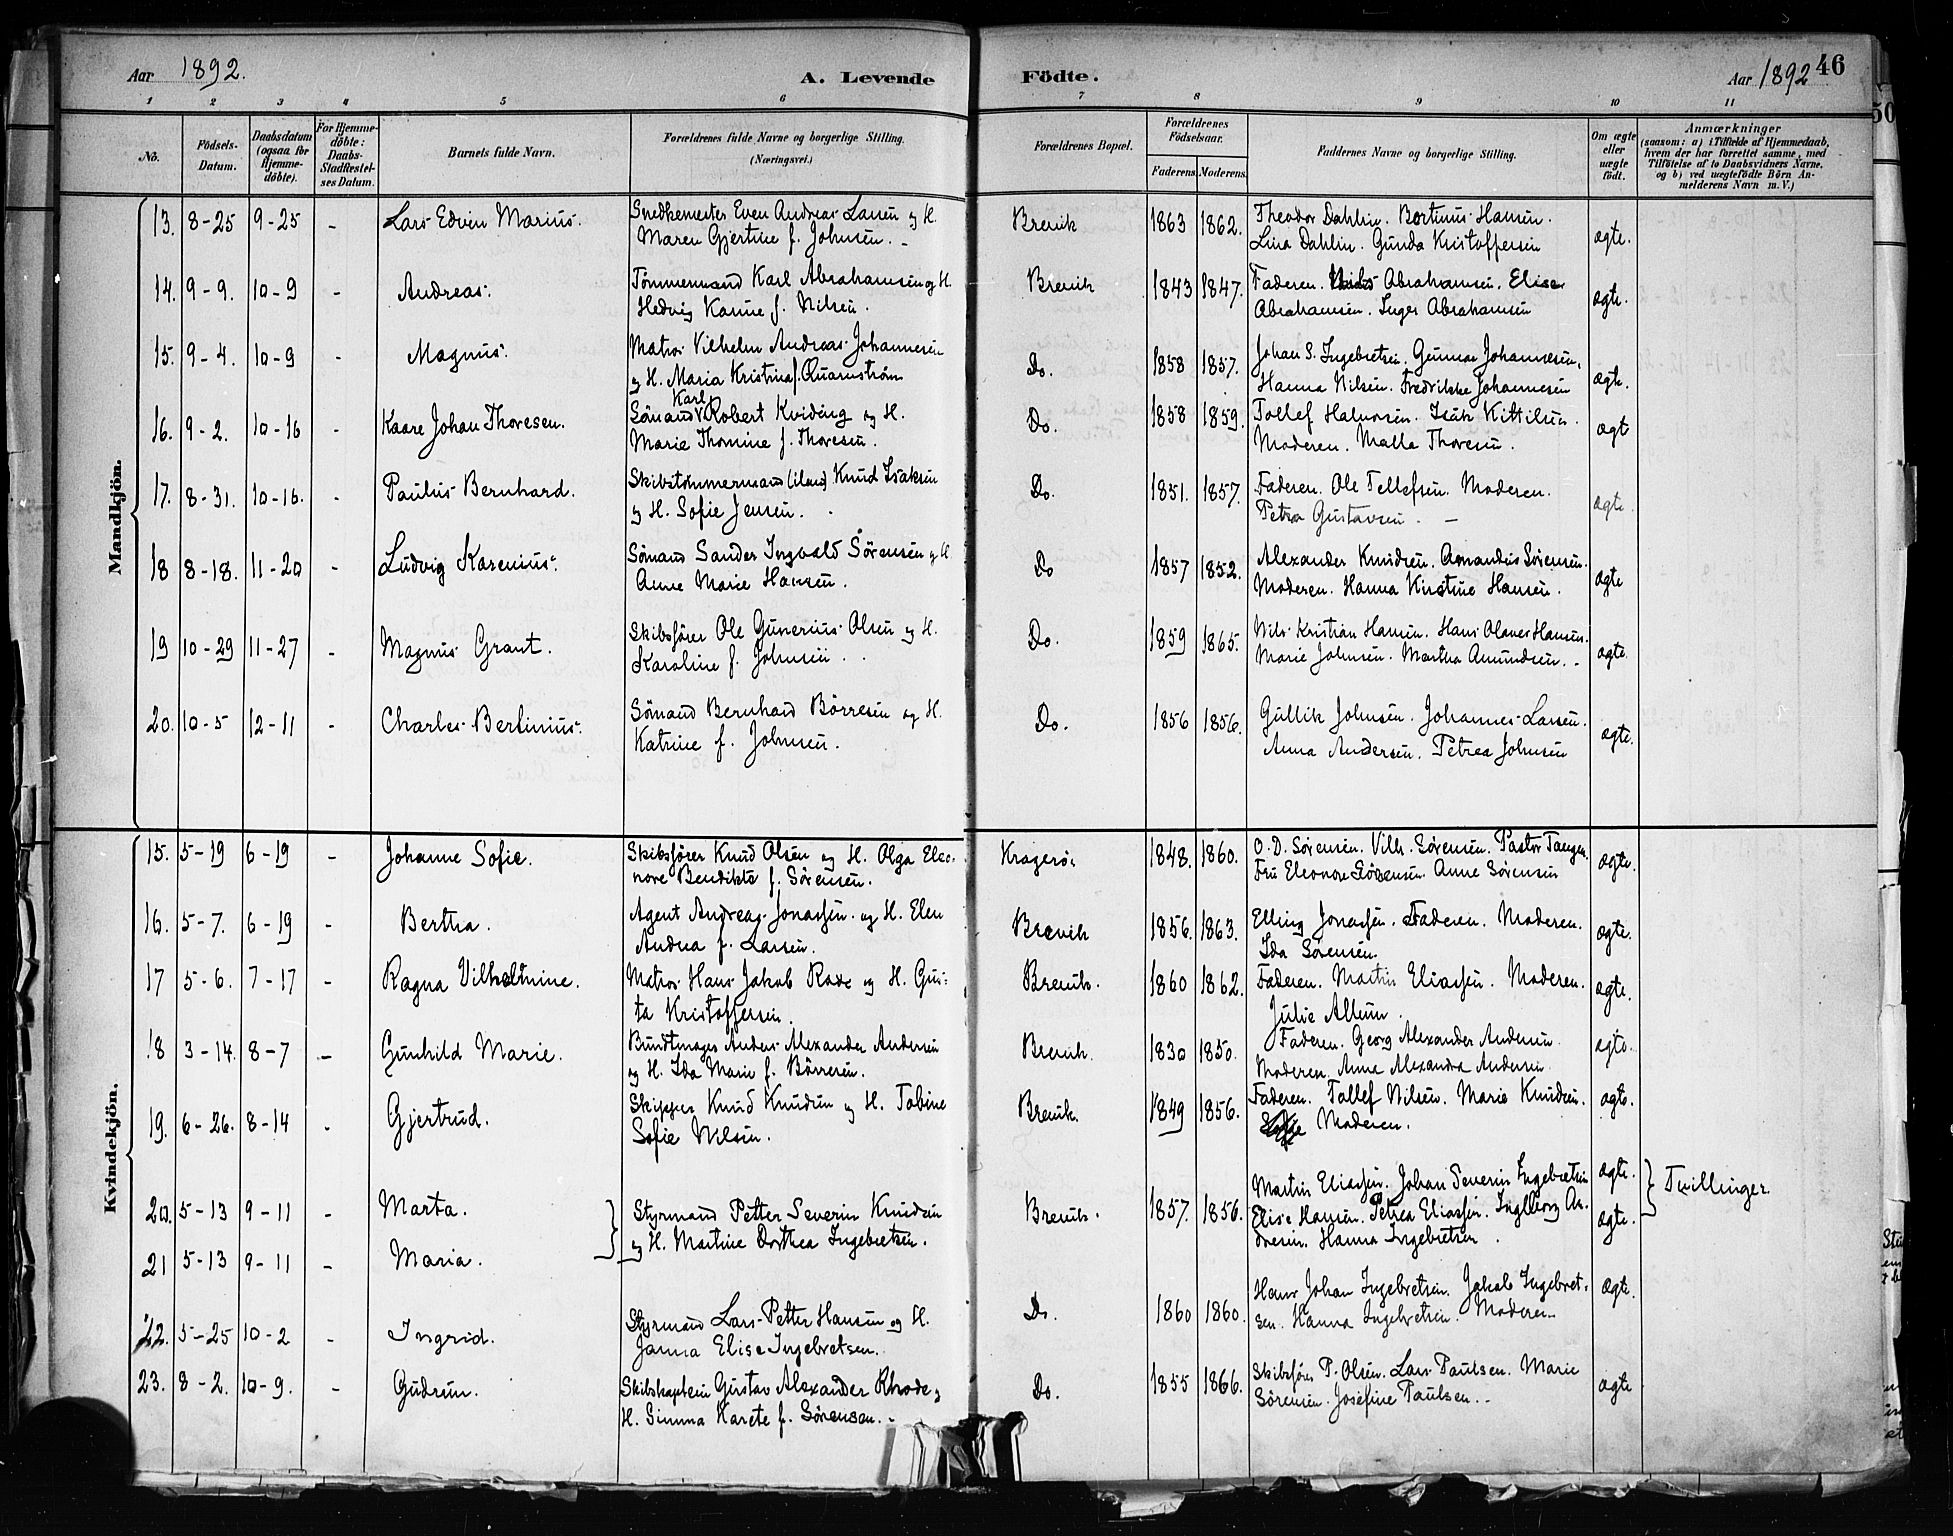 Aar 1892.
A. Levende Födte.
Aar 1892
46
50
1 2 3 4 5 6 7 8 9 10 11
No.
Födsels-Datum.
Daabsdatum (ogsaa for Hjemme-döbte).
For Hjemme-döbte: Daabs-Stadfæstel-ses Datum.
Barnets fulde Navn.
Forældrenes fulde Navne og borgerlige Stilling. (Næringsvei.)
Forældrenes Bopæl.
Forældrenes Födselsaar.
Faderens. Moderens.
Faddernes Navne og borgerlige Stilling.
Om ægte eller uægte födt.
Anmærkninger (saasom: a) i Tilfælde af Hjemmedaab, hvem der har forrettet samme, med Tilföielse af to Daabsvidners Navne, og b) ved uægtefödte Börn An-melderens Navn m. V.)
Mandkjön.
13. 8-25 9-25 - Lars Edvin Marius. Snedkemester Even Andreas Larsen og H. Brevik 1863 1862. Theodor Dahlin. Bertinus Hansen. ægte.
Maren Gjertine f. Johnsen. - Lina Dahlin. Gunda Kristoffersen
14. 9-9. 10-9 - Andreas. Tömmermand Karl Abrahamsen og H. Brevik 1843 1847. Faderen. Abrahamsen. Elise ægte.
Hedvig Kanne f. Nilsen. Abrahamsen. Inger Abrahamsen
15. 9-4. 10-9 - Magnus. Matros Vilhelm Andreas Johannesen Do. 1858 1857. Johan S. Ingebretsen. Gunnar Johannesen. ægte.
og H. Maria Kristina f. Quarnström Hanna Nilsen. Fredrikke Johannesen
16. 9-2. 10-16 - Kaare Johan Thoresen. Sömand Karl Robert Kviding og H. Do. 1858 1859. Tollef Halvorsen. Isak Kittilsen. ægte
Marie Thomine f. Thoresen. Moderen. Malla Thoresen.
17. 8-31. 10-16. - Paulus Bernhard. Skibstömmermand (iland) Knud Isaksen Do. 1851. 1857. Faderen. Ole Tellefsen. Moderen. ægte.
og H. Sofie Jensen. Petra Gustavsen. -
18 8-18. 11-20 - Ludvig Karenius. Sömand Sander Ingvald Sörensen og H Do 1857 1852. Alexander Knudsen. Amandus Sörensen. ægte
Anne Marie Hansen. Moderen. Hanna Kirstine Hansen.
19 10-29 11-27 - Magnus Grant. Skibsförer Ole Gunerius Olsen og H. Do. 1859 1865. Nils Kristian Hansen. Hans Olaves Hansen. ægte.
Karoline f. Johnsen. Marie Johnsen. Martha Amundsen. -
20. 10-5 12-11 - Charles Bertinius. Sömand Bernhard Börresen og H. Do. 1856 1856. Gullik Johnsen. Johannes Larsen. ægte.
Katrine f. Johnsen. Anna Andersen. Petrea Johnsen
Kvindekjön.
15. 5-19 6-19 - Johanne Sofie. Skibsförer Knud Olsen og H. Olga Eleo- Kragerö. 1848. 1860. O. D. Sörensen. Vilh. Sörensen. Pastor Taugen. ægte.
nore Bendikte f. Sörensen. Fru Eleonore Sörensen. Anne Sörensen
16. 5-7. 6-19 - Bertha. Agent Andreas Jonassen og H. Elen Brevik 1856. 1863. Elling Jonassen. Faderen. Moderen. ægte.
Andrea f. Larsen. Ida Sörensen.
17 5-6. 7-17 - Ragna Vilhelmine. Matros Hans Jakob Rode og H. Gus- Brevik. 1860 1862. Faderen. Martin Eliassen. Moderen. ægte.
ta Kristoffersen. Julie Allum.
18 3-14. 8-7 - Gunhild Marie. Bundtmager Anders Alexander Andersen Brevik. 1830 1850. Faderen. Georg Alexander Andersen. ægte.
og H. Ida Marie f. Börresen. Moderen. Anne Alexandra Andersen
19. 6-26. 8-14 - Gjertrud. Skipper Knud Knudsen og H. Tobine Brevik. 1849 1856. Faderen. Tallef Nilsen. Marie Knudsen. ægte.
Sofie Nilsen. Moderen.
20. 5-13 9-11 - Marta. Styrmand Petter Severin Knudsen Brevik. 1857. 1856. Martin Eliassen. Johan Severin Ingebretsen ægte. Tvillinger
og H. Martine Dorthea Ingebretsen. Elise Hansen. Petrea Eliassen. Ingeborg An- ægte.
21 5-13 9-11 - Maria. dresen. Hanna Ingebretsen.
22. 5-25 10-2 - Ingrid. Styrmand Lars Petter Hansen og H. Do. 1860 1860. Hans Johan Ingebretsen. Jakob Ingebret- ægte.
Janna Elise Ingebretsen. sen. Hanna Ingebretsen. Moderen
23. 8-2. 10-9. - Gudrun. Skibskaptein Gustav Alexander Rhode og Do. 1855 1866. Skibsförer P. Olsen. Lars Paulsen. Marie ægte
H. Simma Karete f. Sörensen. - Sörensen. Josefine Paulsen. -